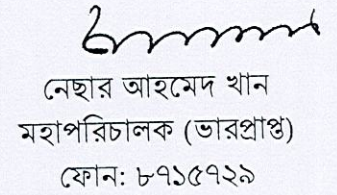 নেছার আহমেদ খান
মহাপরিচালক (ভারপ্রাপ্ত)
ফোন: ৮৭১৫৭২৯